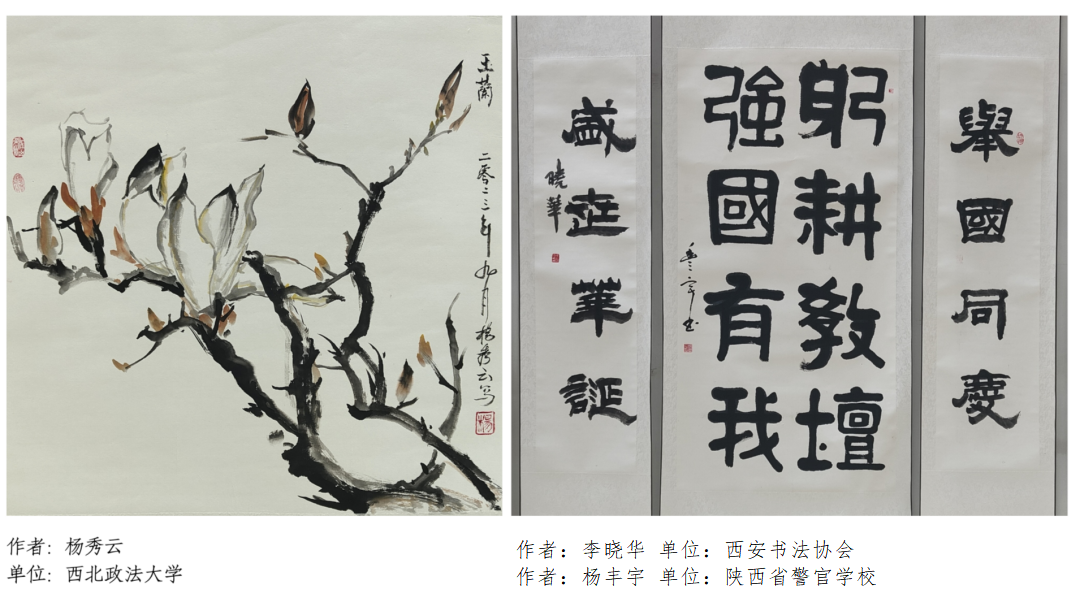 玉蘭
二零二三年九月杨秀云写
舉國同慶
躬耕教壇
強國有我
丰宇书
盛世華誕
曉華
作者：杨秀云
单位：西北政法大学
作者：李晓华 单位：西安书法协会
作者：杨丰宇 单位：陕西省警官学校